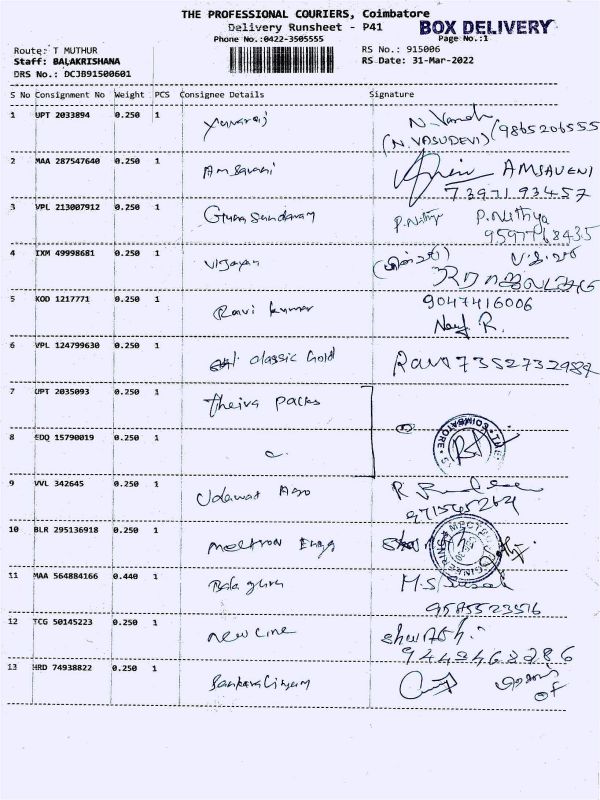 THE PROFESSIONAL COURIERS, Coimbatore
Delivery Runsheet - P41
BOX DELIVERY
Phone No.:0422-3505555
Page No.:1
Route: T MUTHUR
RS No.: 915006
Staff: BALAKRISHANA
RS Date: 31-Mar-2022
DRS No.: DCJB91500601
S No Consignment No Weight PCS Consignee Details Signature
1 UPT 2033894 0.250 1 Yuvaraj
(N. VASUDEVI) (9865206555
2 MAA 287547640 0.250 1 Amsaveni AMSAVENI
7397193457
3 VPL 213007912 0.250 1 Gunasundaram P.Nithya P.Nithya
9597768435
4 IXM 49998681 0.250 1 Vijayan
5 KOD 1217771 0.250 1 Ravi kumar 9047416006
6 VPL 124799630 0.250 1 classic Gold Ravi 7352732989
7 UPT 2035093 0.250 1 Theiva packs
8 EDQ 15790019 0.250 1
COIMBATORE
9 VVL 342645 0.250 1 Udawat Agro
10 BLR 295136918 0.250 1 Meltron Engg
11 MAA 564884166 0.440 1 Balaguru
9585523516
12 TCG 50145223 0.250 1 new cine
9442463286
13 HRD 74938822 0.250 1 Sankaralingam